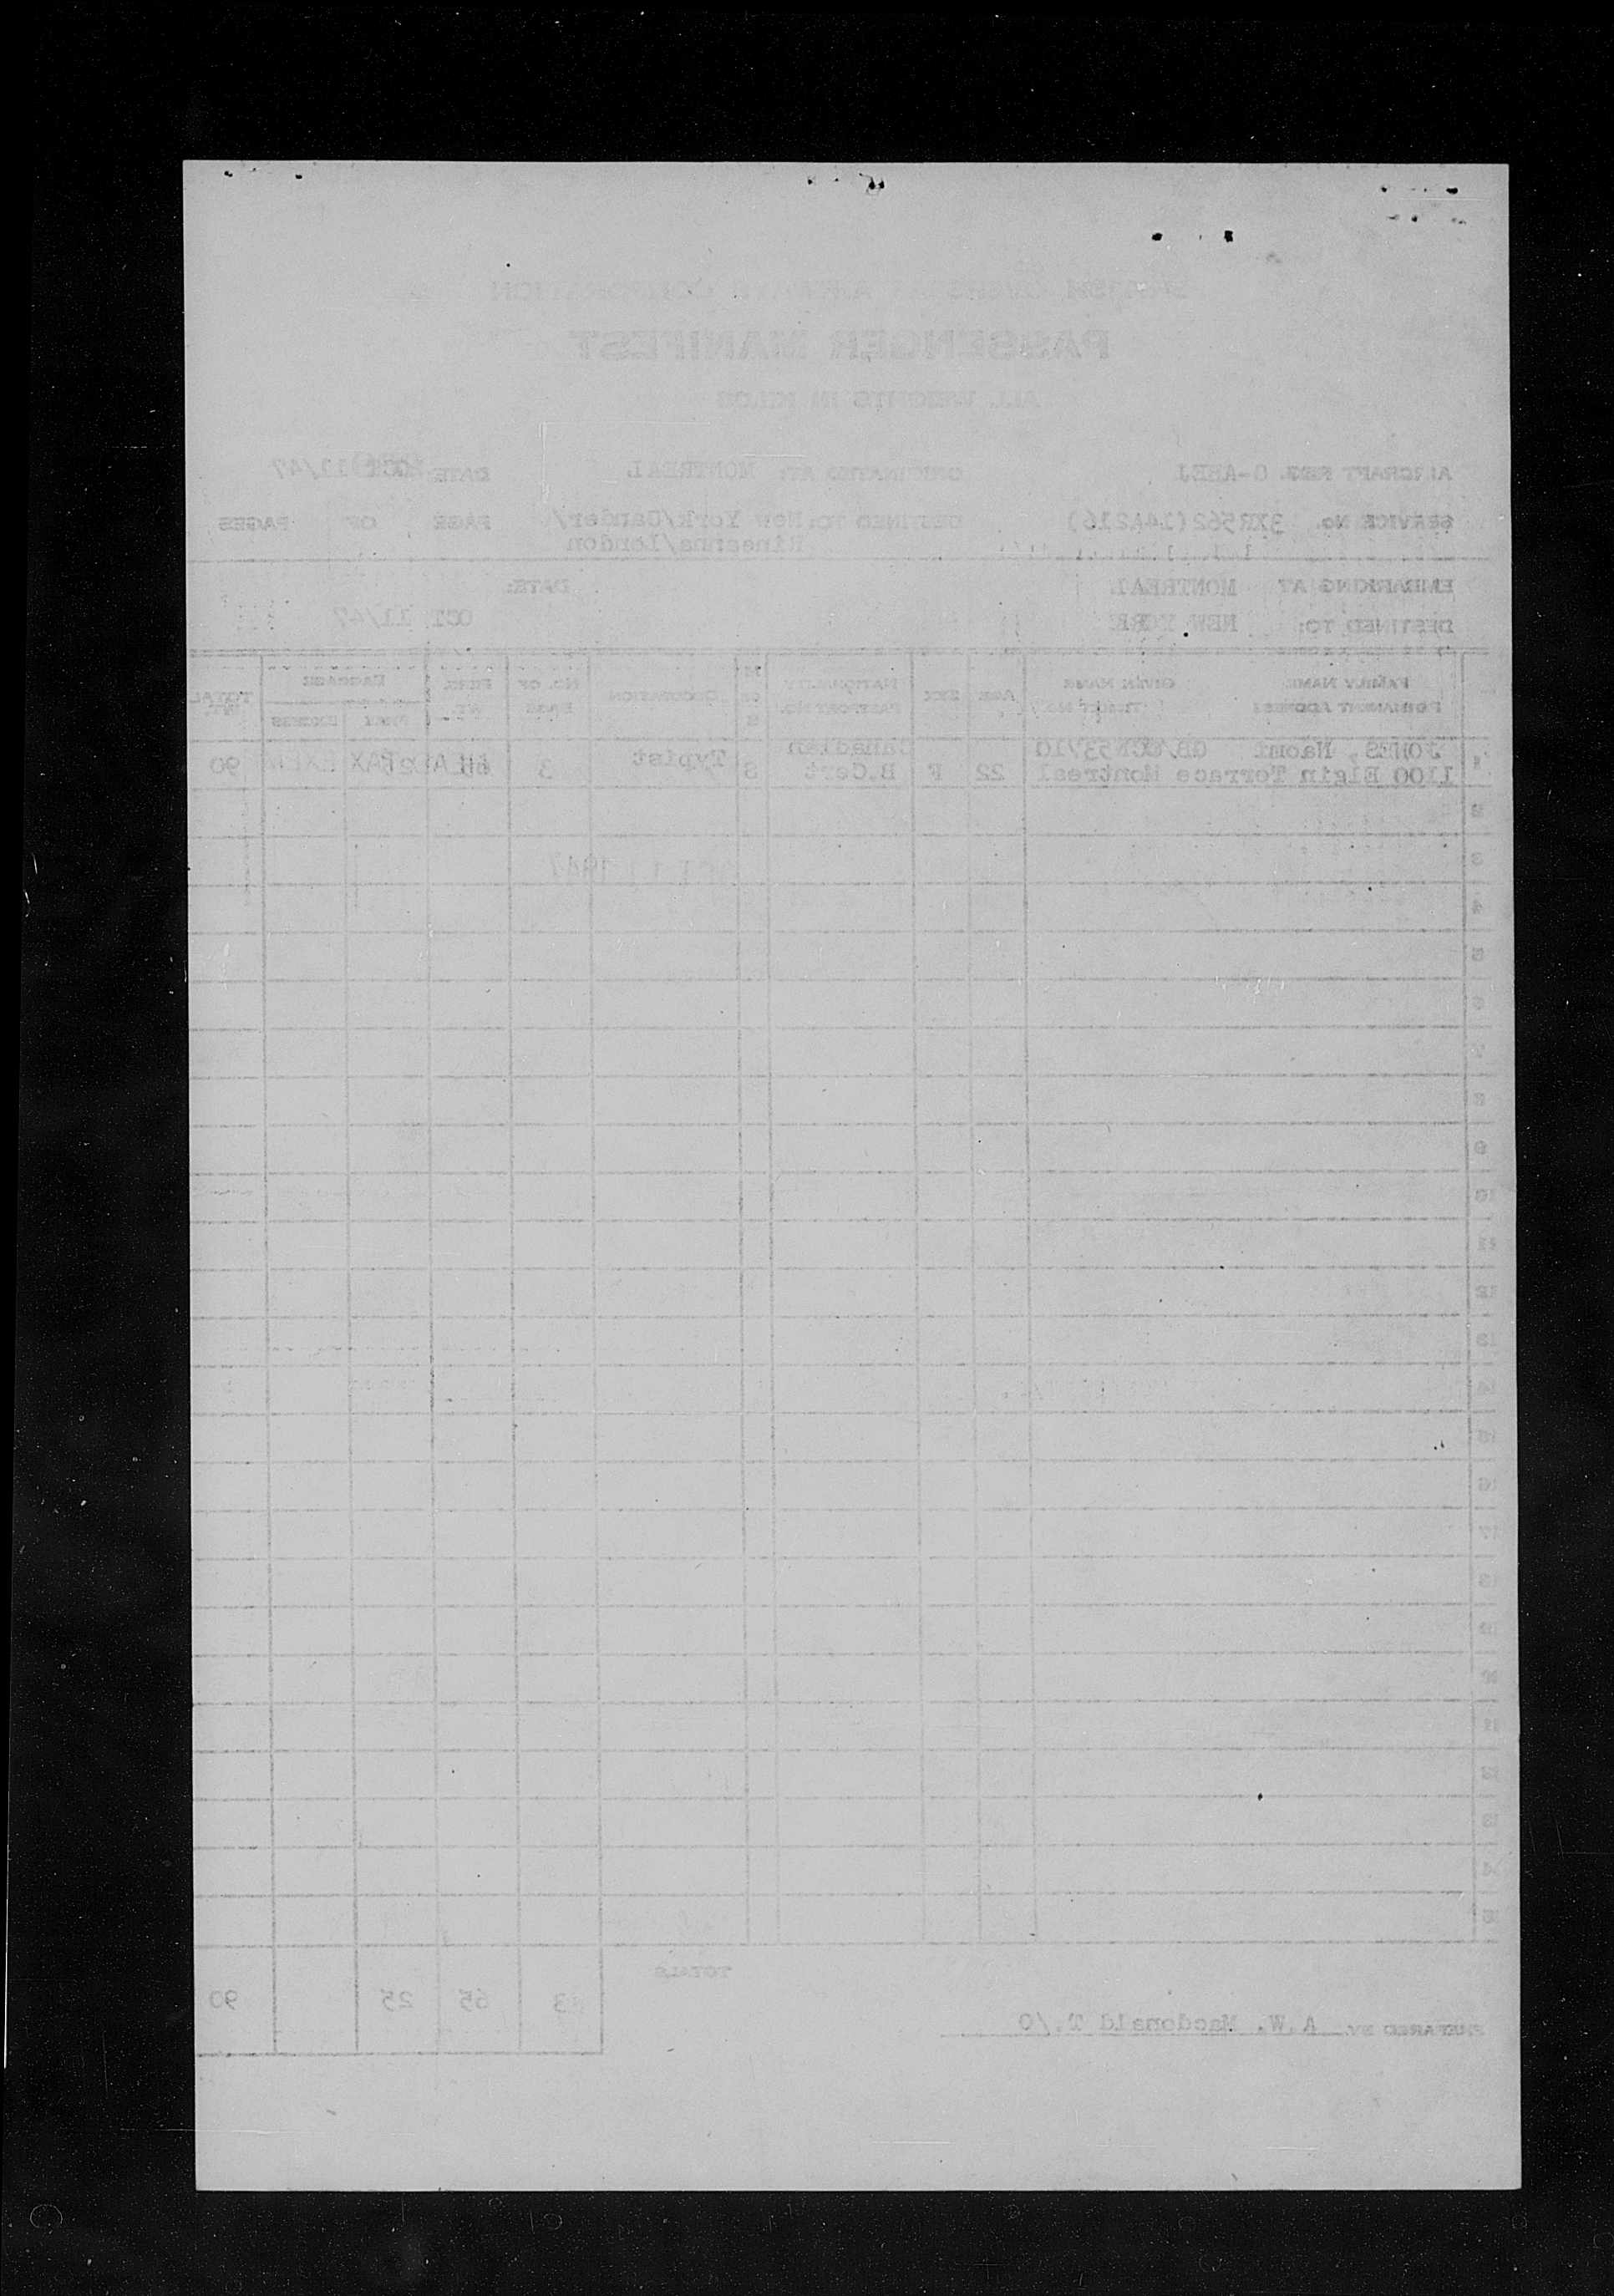 BRITISH OVERSEAS AIRWAYS CORPORATION
PASSENGER MANIFEST
ALL WEIGHTS IN KILOS
AIRCRAFT REG. G-AHEJ ORIGINATED AT: MONTREAL DATE: OCT 11/47
SERVICE No. 3XR562(14A216) DESTINED TO: New York/Gander/ PAGE OF PAGES
Rineanna/London
EMBARKING AT MONTREAL DATE:
DESTINED TO: NEW YORK OCT 11/47
FAMILY NAME GIVEN NAME AGE SEX NATIONALITY M OCCUPATION NO. OF PERS. BAGGAGE TOTAL
PERMANENT ADDRESS TICKET No. PASSPORT NO. OR S PCES WT. FREE EXCESS WT.
1 JONES, Naomi Canadian Typist 3 TAX 90
1100 Elgin Terrace Montreal 22 F B.Cert S
2
3
1947
4
5
6
7
8
9
10
11
12
13
14
15
16
17
18
19
TOTALS
3 65 25 90
PREPARED BY A.W. Macdonald T./O